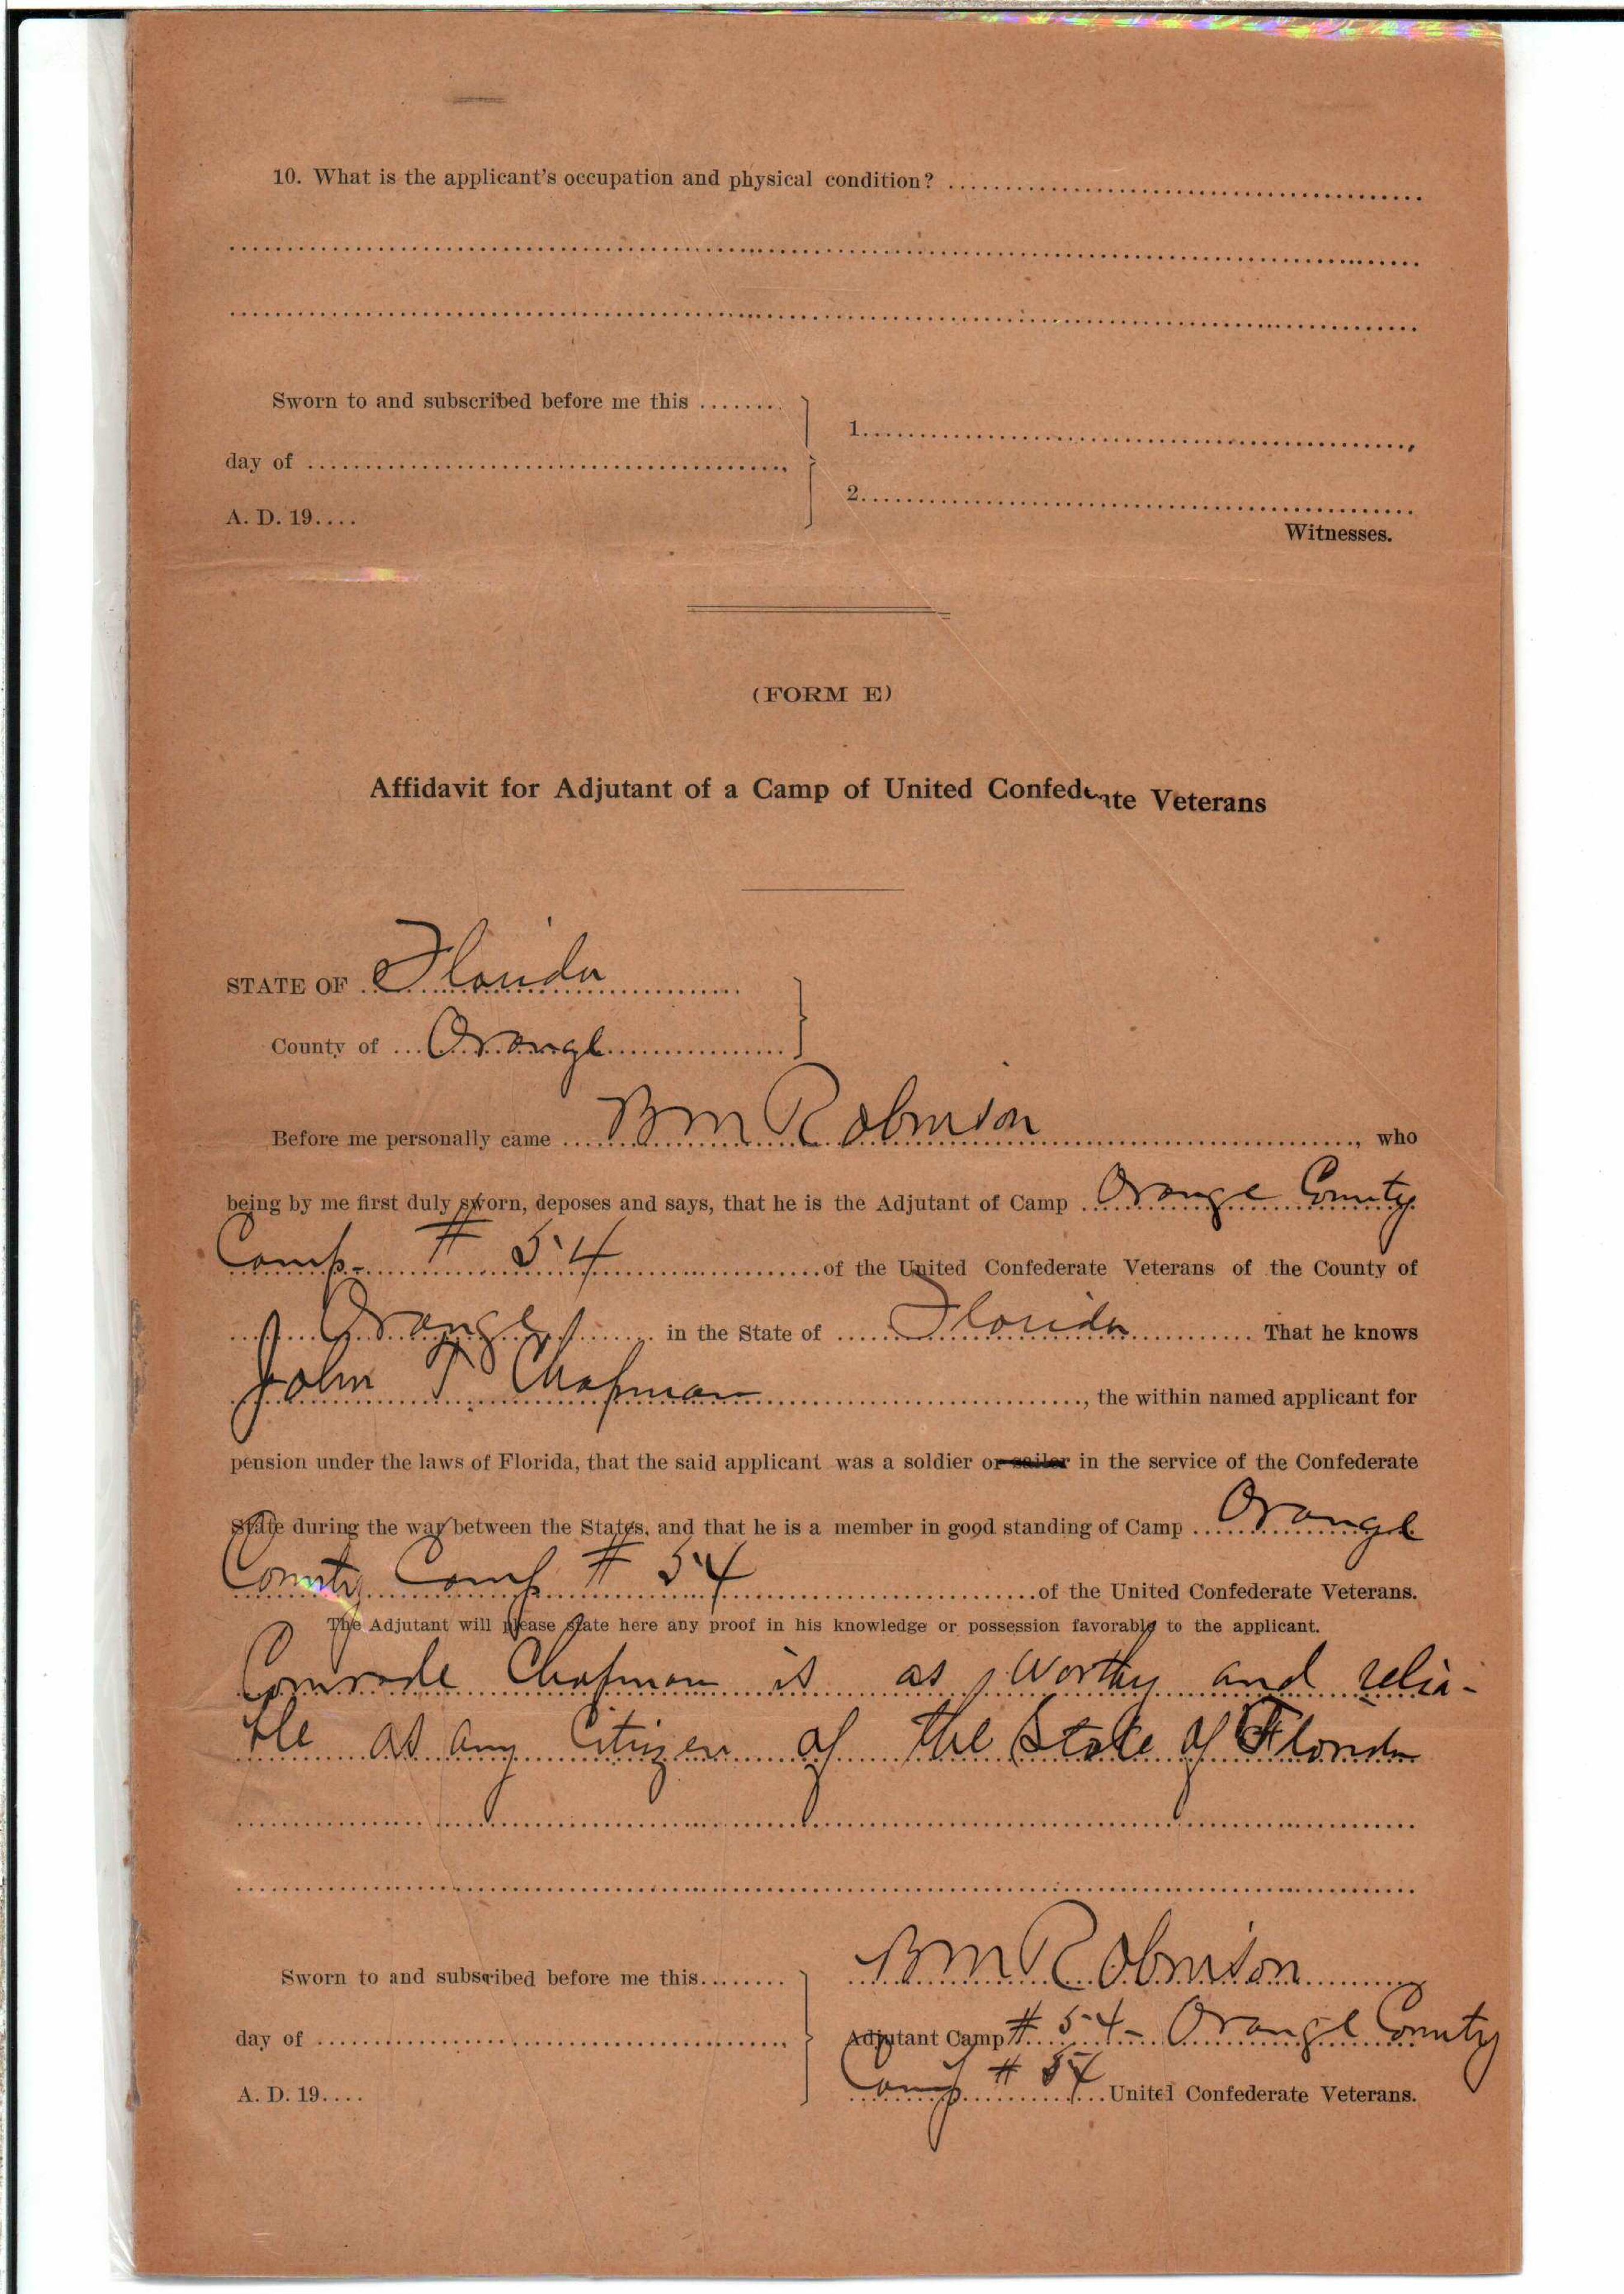 10. What is the applicant's occupation and physical condition? ........................................
........................................
........................................
Sworn to and subscribed before me this ........
day of ........................................
A. D. 19....
1........................................
2........................................
Witnesses.
(FORM E)
Affidavit for Adjutant of a Camp of United Confederate Veterans
STATE OF Florida
County of Orange
Before me personally came B M Robinson, who
being by me first duly sworn, deposes and says, that he is the Adjutant of Camp Orange County
Camp - # 54 of the United Confederate Veterans of the County of
Orange in the State of Florida That he knows
John T Chapman, the within named applicant for
pension under the laws of Florida, that the said applicant was a soldier or sailor in the service of the Confederate
State during the war between the States, and that he is a member in good standing of Camp Orange
County Camp # 54 of the United Confederate Veterans.
The Adjutant will please state here any proof in his knowledge or possession favorable to the applicant.
Comrade Chapman is as Worthy and relia-
ble as any Citizen of the State of Florida
........................................
........................................
Sworn to and subscribed before me this........
day of ........................................
A. D. 19....
B M Robinson
Adjutant Camp # 54 - Orange County
Camp # 54 United Confederate Veterans.